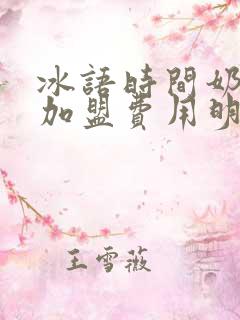 冰語時間奶
加盟費用明
王雪薇